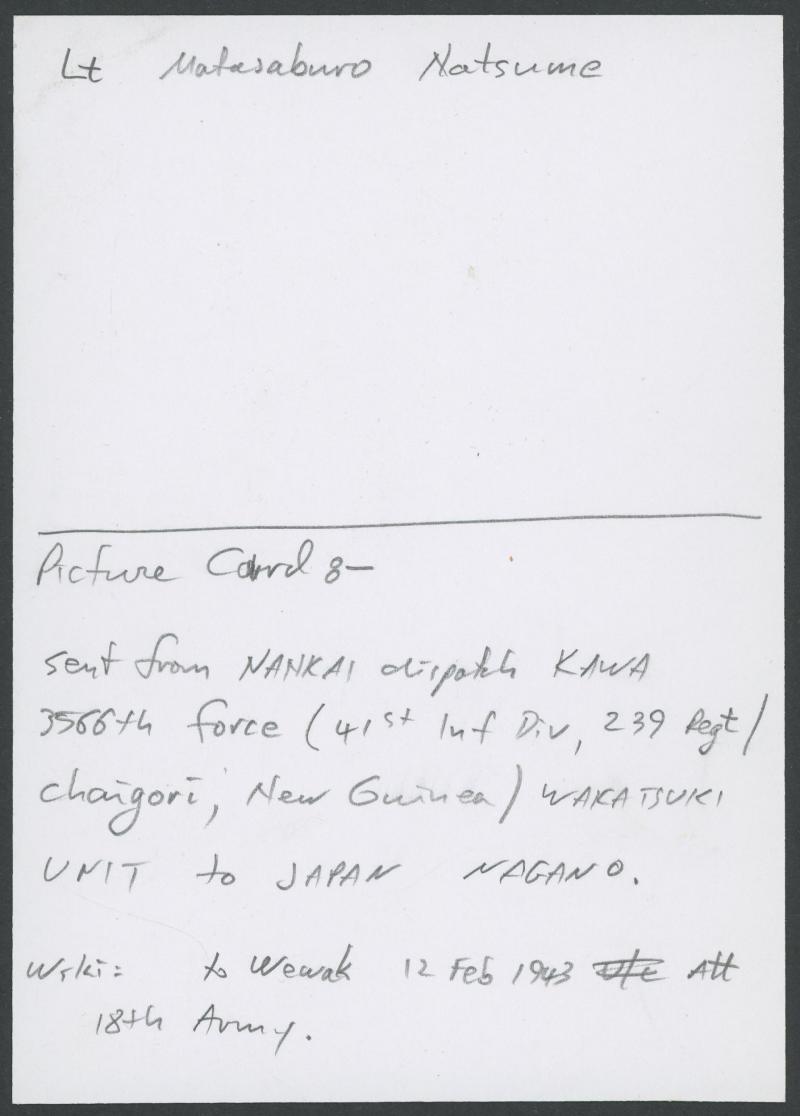 Lt Matasaburo Natsume
Picture Card 8-
sent from NANKAI dispatch KAWA
3566th force (41st Inf Div, 239 Regt/
chaigori, New Guinea) WAKATSUKI
UNIT to JAPAN NAGANO.
Wiki: to Wewak 12 Feb 1943 Att
18th Army.